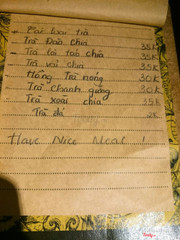 Các loại trà
Trà Đào chia 35K
Trà tắc chia 35K
Trà vải chia 35K
Hồng Trà nóng 30K
Trà chanh gừng 30K
Trà xoài chia 35K
Trà đá 2K
Have Nice Meal !